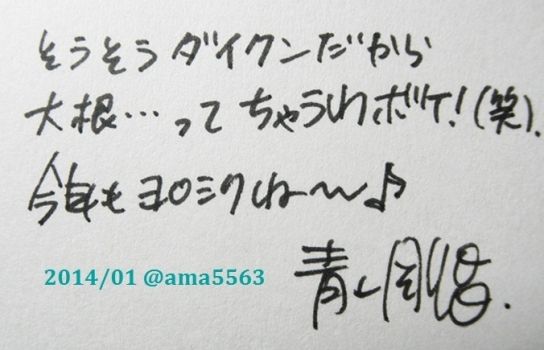 そうそうダイクンだから
大根…ってちゃうわボケ!(笑).
今年もヨロシクねー〜♪
2014/01 @ama5563
青山剛昌.